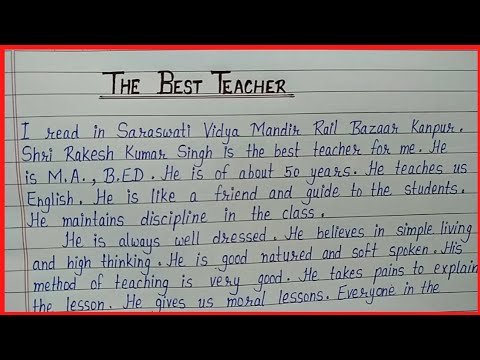 THE BEST TEACHER
I read in Saraswati Vidya Mandir Rail Bazaar Kanpur.
Shri Rakesh Kumar Singh is the best teacher for me. He
is M.A., B.ED. He is of about 50 years. He teaches us
English. He is like a friend and guide to the students.
He maintains discipline in the class.
He is always well dressed. He believes in simple living
and high thinking. He is good natured and soft spoken. His
method of teaching is very good. He takes pains to explain
the lesson. He gives us moral lessons. Everyone in the